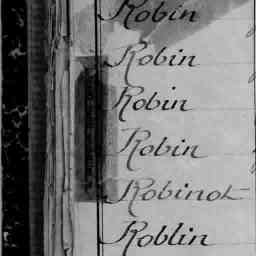 Robin
Robin
Robin
Robin
Robinot
Roblin